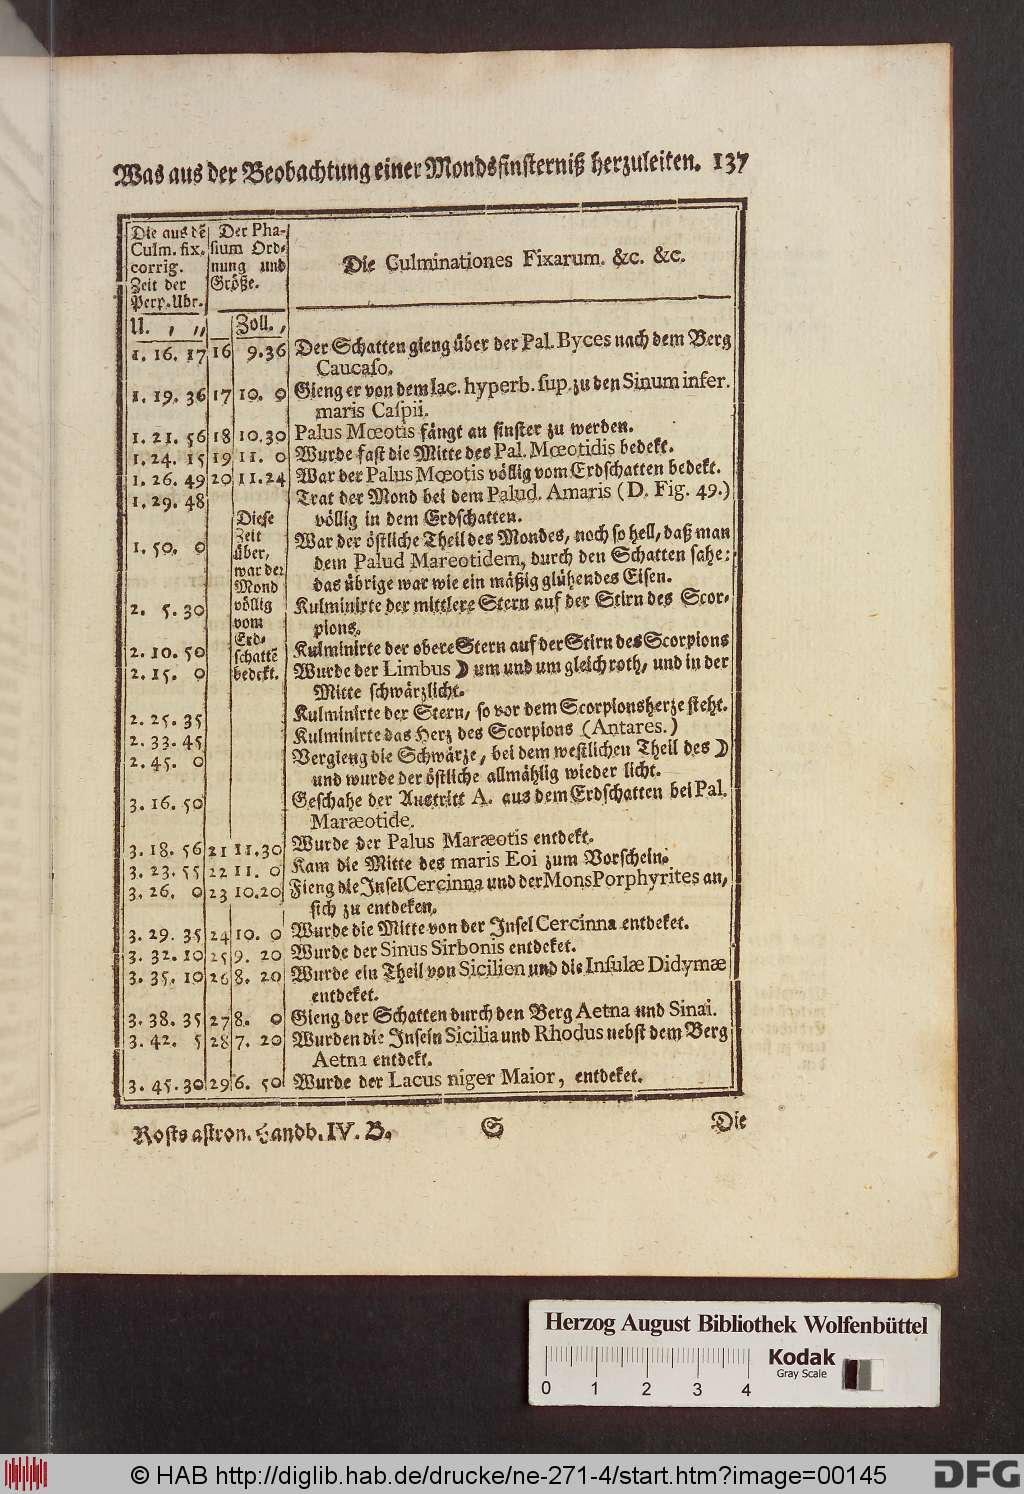 Was aus der Beobachtung einer Mondsfinsterniß herzuleiten. 137
Die aus dẽ
Culm. fix.
corrig.
Zeit der
Perp. Uhr.
Der Pha-
sium Ord-
nung und
Größe.
Die Culminationes Fixarum. &c. &c.
U. , ,, Zoll. ,
1. 16. 17 16 9.36 Der Schatten gieng über der Pal. Byces nach dem Berg
Caucaso.
1. 19. 36 17 10. 0 Gieng er von dem lac. hyperb. sup. zu den Sinum infer.
maris Caspii.
1. 21. 56 18 10.30 Palus Mœotis fängt an finster zu werden.
1. 24. 15 19 11. 0 Wurde fast die Mitte des Pal. Mœotidis bedekt.
1. 26. 49 20 11.24 War der Palus Mœotis völlig vom Erdschatten bedekt.
1. 29. 48 Trat der Mond bei dem Palud. Amaris (D. Fig. 49.)
völlig in dem Erdschatten.
Diese
Zeit
über,
war der
Mond
völlig
vom
Erd-
schattẽ
bedekt.
1. 50. 0 War der östliche Theil des Mondes, noch so hell, daß man
dem Palud Mareotidem, durch den Schatten sahe:
das übrige war wie ein mäßig glühendes Eisen.
2. 5. 30 Kulminirte der mittlere Stern auf der Stirn des Scor-
pions.
2. 10. 50 Kulminirte der obere Stern auf der Stirn des Scorpions
2. 15. 0 Wurde der Limbus ☽ um und um gleich roth, und in der
Mitte schwärzlicht.
2. 25. 35 Kulminirte der Stern, so vor dem Scorpionsherze steht.
2. 33. 45 Kulminirte das Herz des Scorpions (Antares.)
2. 45. 0 Vergieng die Schwärze, bei dem westlichen Theil des ☽
und wurde der östliche allmählig wieder licht.
3. 16. 50 Geschahe der Austritt A. aus dem Erdschatten bei Pal.
Maræotide.
3. 18. 56 21 11.30 Wurde der Palus Maræotis entdekt.
3. 23. 55 22 11. 0 Kam die Mitte des maris Eoi zum Vorschein.
3. 26. 0 23 10.20 Fieng die Insel Cercinna und der Mons Porphyrites an,
sich zu entdeken.
3. 29. 35 24 10. 0 Wurde die Mitte von der Insel Cercinna entdeket.
3. 32. 10 25 9. 20 Wurde der Sinus Sirbonis entdeket.
3. 35. 10 26 8. 20 Wurde ein Theil von Sicilien und die Insulæ Didymæ
entdeket.
3. 38. 35 27 8. 0 Gieng der Schatten durch den Berg Aetna und Sinai.
3. 42. 5 28 7. 20 Wurden die Inseln Sicilia und Rhodus nebst dem Berg
Aetna entdekt.
3. 45. 30 29 6. 50 Wurde der Lacus niger Maior, entdeket.
Rosts astron. Handb. IV. B. S Die
Herzog August Bibliothek Wolfenbüttel
0 1 2 3 4
Kodak
Gray Scale
© HAB http://diglib.hab.de/drucke/ne-271-4/start.htm?image=00145
DFG